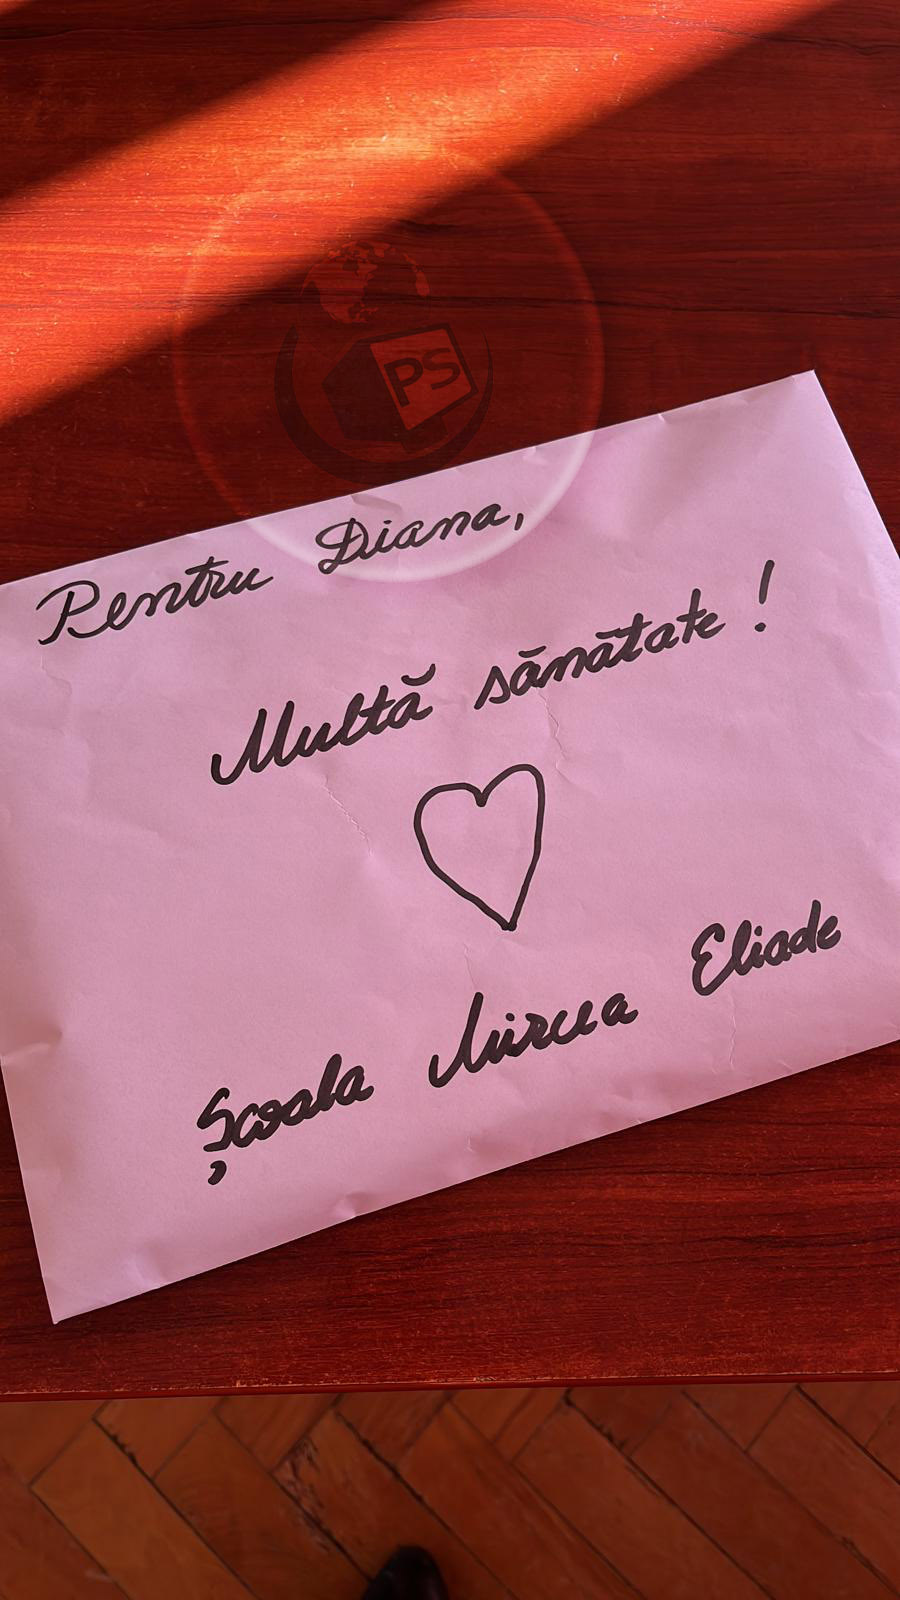 PS
Pentru Diana,
Multă sănătate!
Școala Mircea Eliade